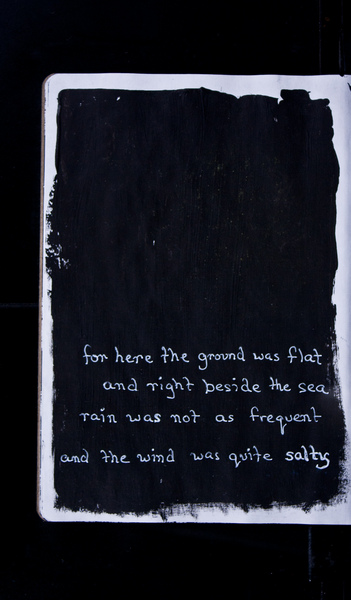 for here the ground was flat
and right beside the sea
rain was not as frequent
and the wind was quite salty